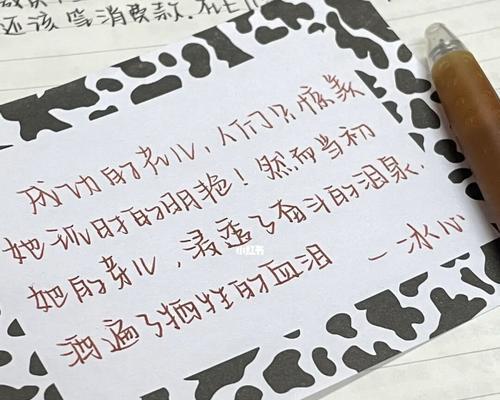 还该等消费款.
成功的花儿,人们只惊羡
她现时的明艳!然而当初
她的芽儿,浸透了奋斗的泪泉,
洒遍了牺牲的血泪 一冰心
小红书